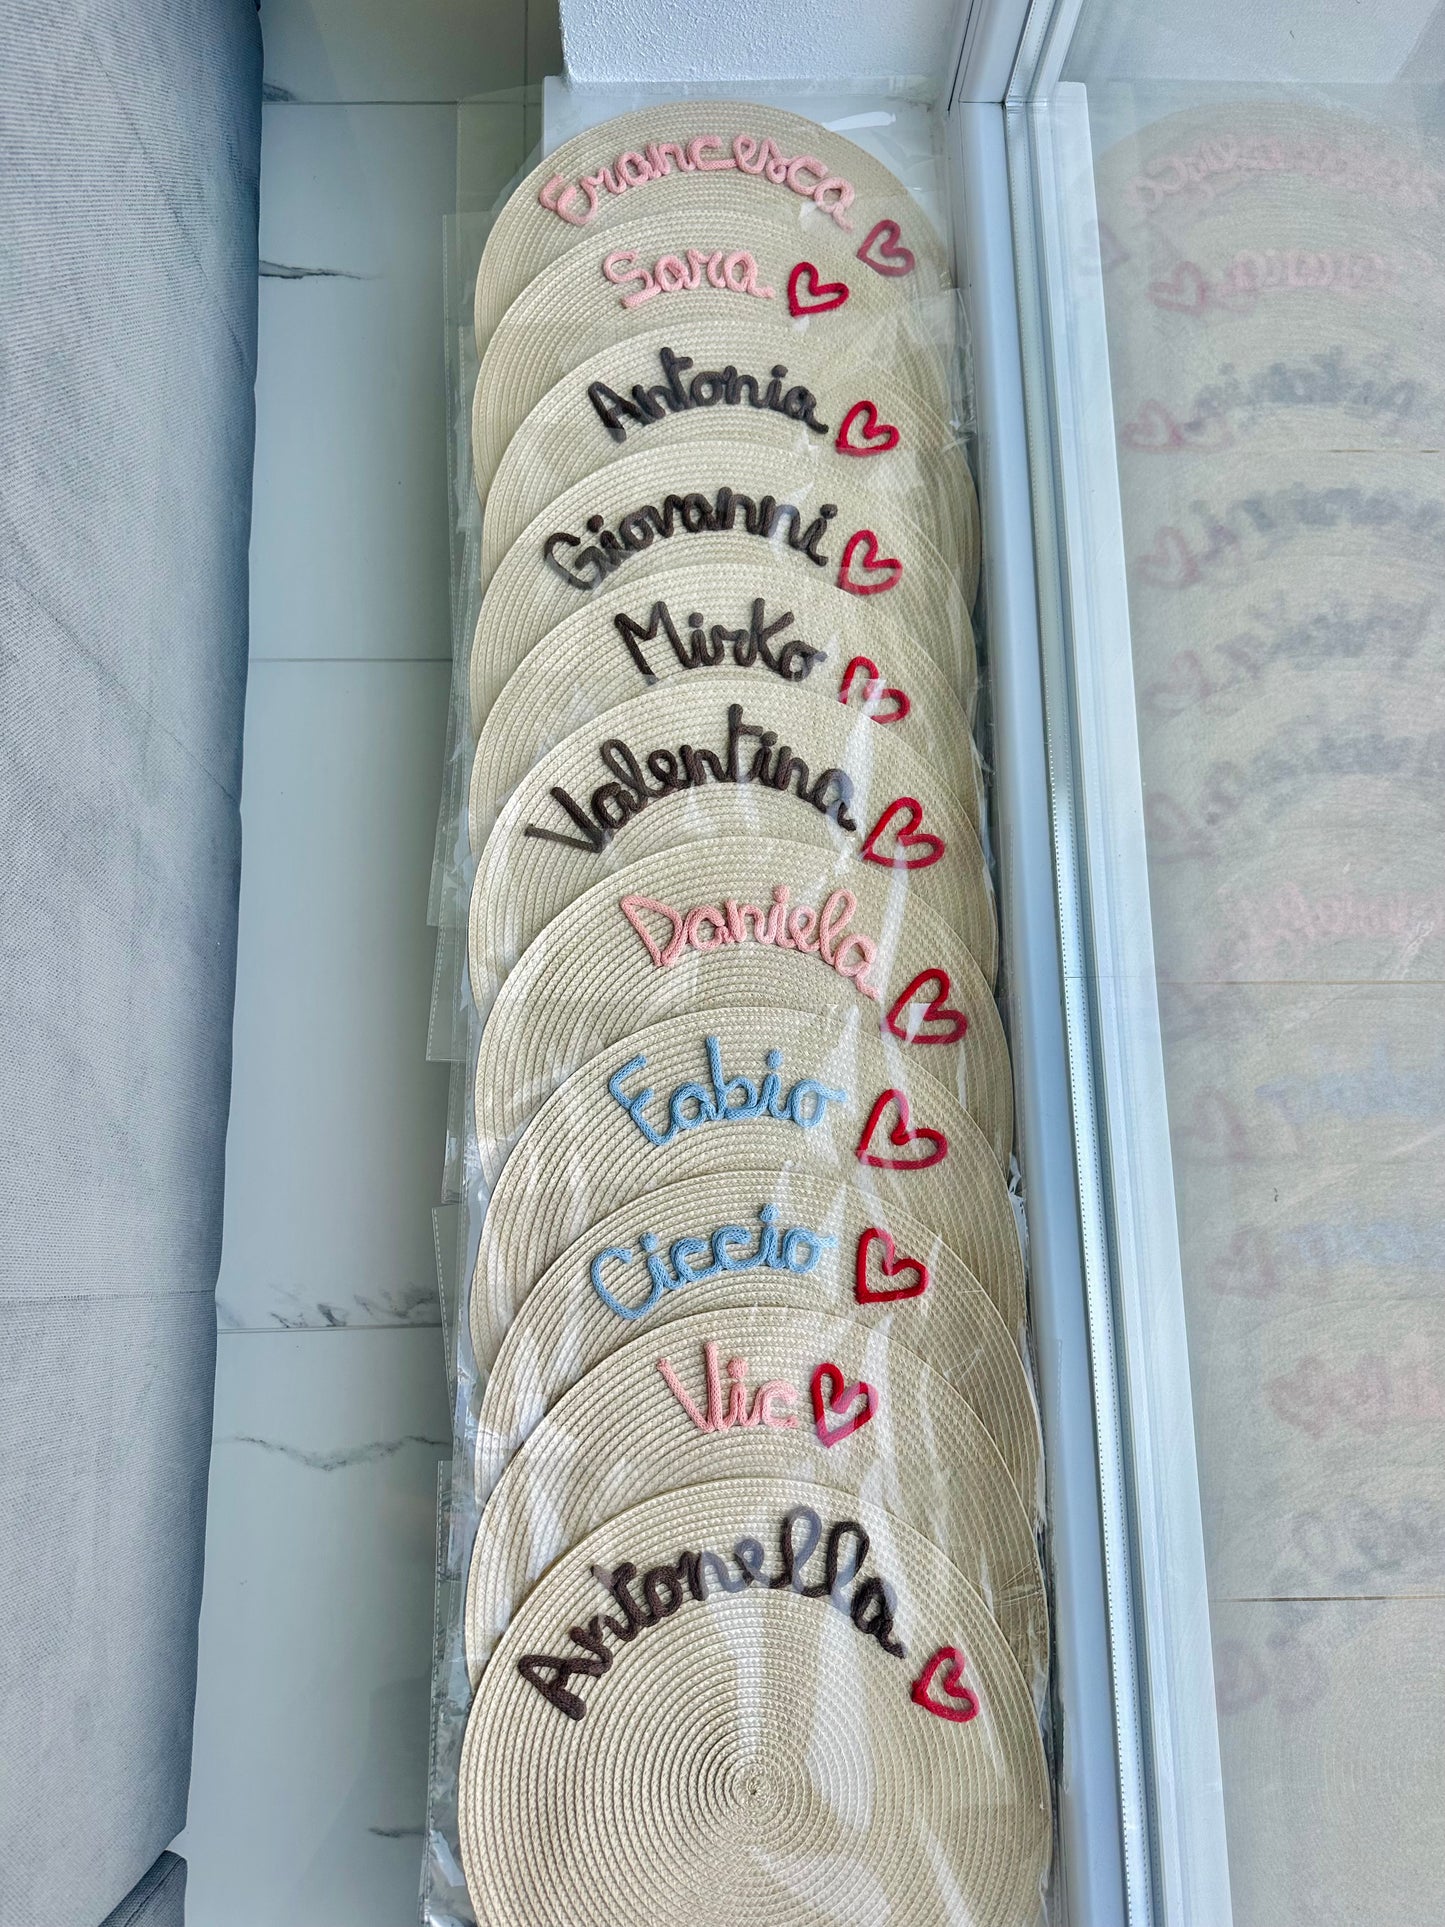 Francesca
Sara
Antonia
Giovanni
Mirko
Valentina
Daniela
Fabio
Ciccio
Vic
Antonella